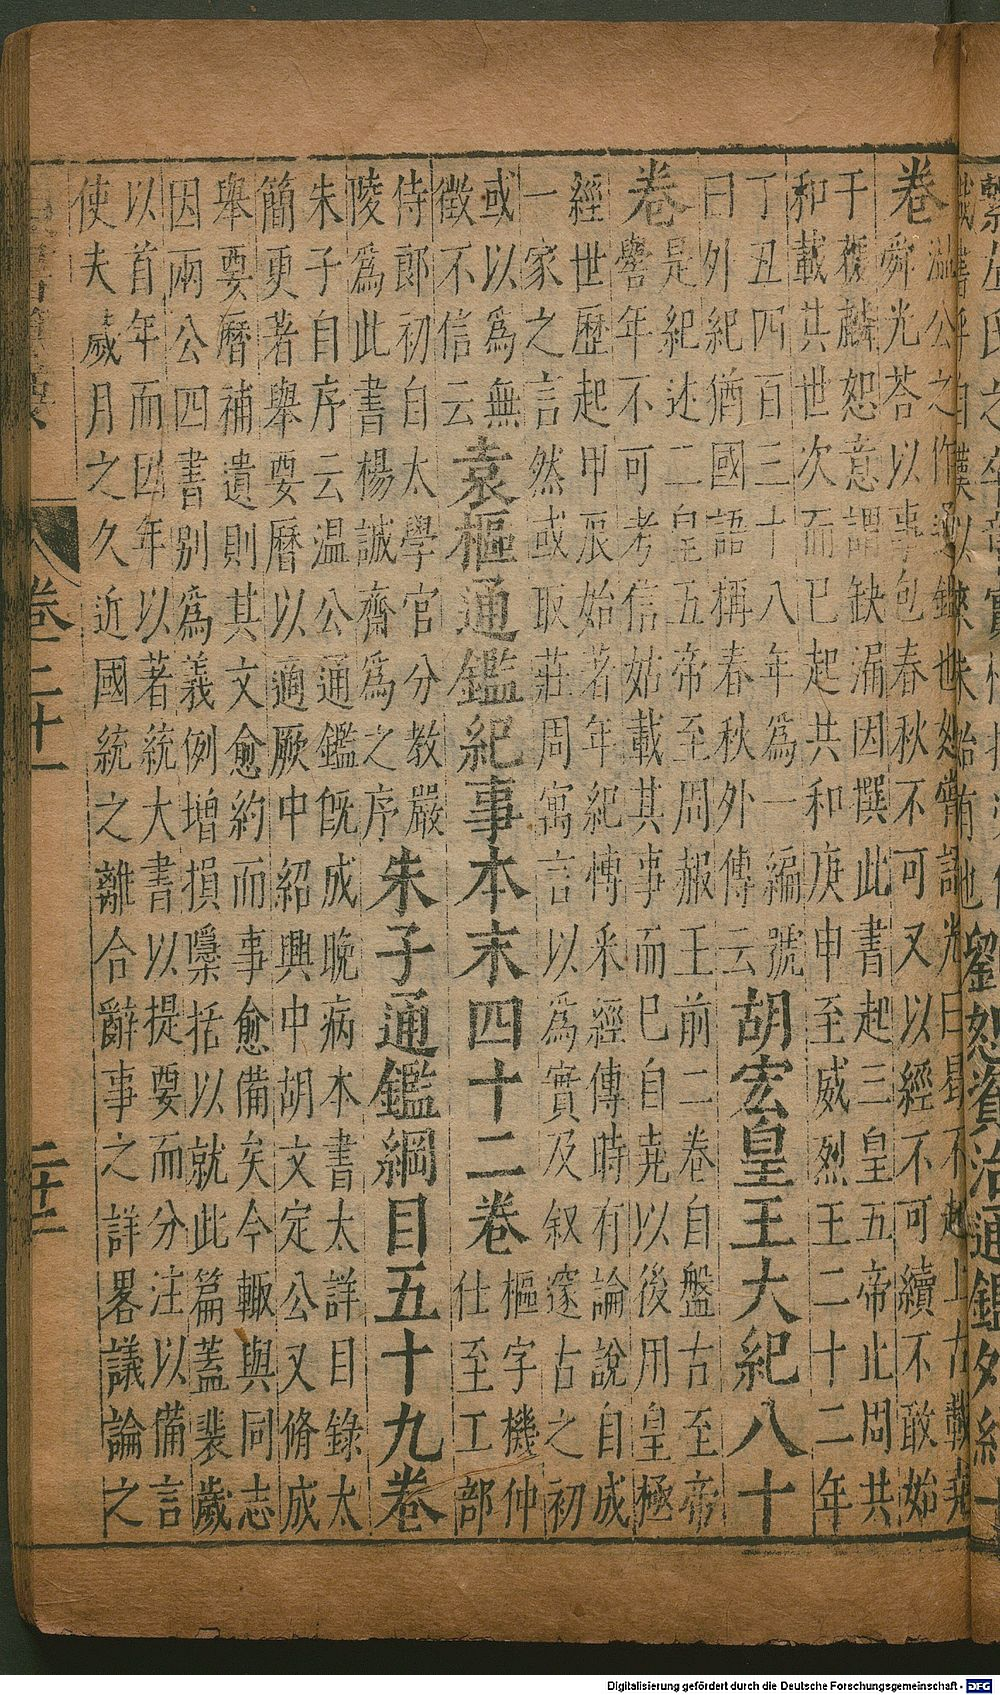 劉恕資治通鑑外紀十
卷
溫公之作通鑑也恕嘗語光曰曷不起上古載堯
舜光荅以事包春秋不可又以經不可續不敢始
于獲麟恕意謂缺漏因撰此書起三皇五帝止周共
和載其世次而已起共和庚申至威烈王二十二年
丁丑四百三十八年爲一編號
曰外紀猶國語稱春秋外傳云
胡宏皇王大紀八十
卷
是紀述二皇五帝至周赧王前二卷自盤古至帝
嚳年不可考信姑載其事而已自堯以後用皇極
經世歷起甲辰始著年紀博采經傳時有論說自成
一家之言然或取莊周寓言以爲實及叙邃古之初
或以爲無
徵不信云
袁樞通鑑紀事本末四十二卷
樞字機仲
仕至工部
侍郎初自太學官分教嚴
陵爲此書楊誠齋爲之序
朱子通鑑綱目五十九卷
朱子自序云温公通鑑旣成晚病本書太詳目錄太
簡更著舉要曆以適厥中紹興中胡文定公又脩成
舉要曆補遺則其文愈約而事愈備矣今輒與同志
因兩公四書別爲義例增損檃括以就此篇蓋裴歲
以首年而因年以著統大書以提要而分注以備言
使夫歲月之久近國統之離合辭事之詳畧議論之
卷二十一
二十二
Digitalisierung gefördert durch die Deutsche Forschungsgemeinschaft - DFG